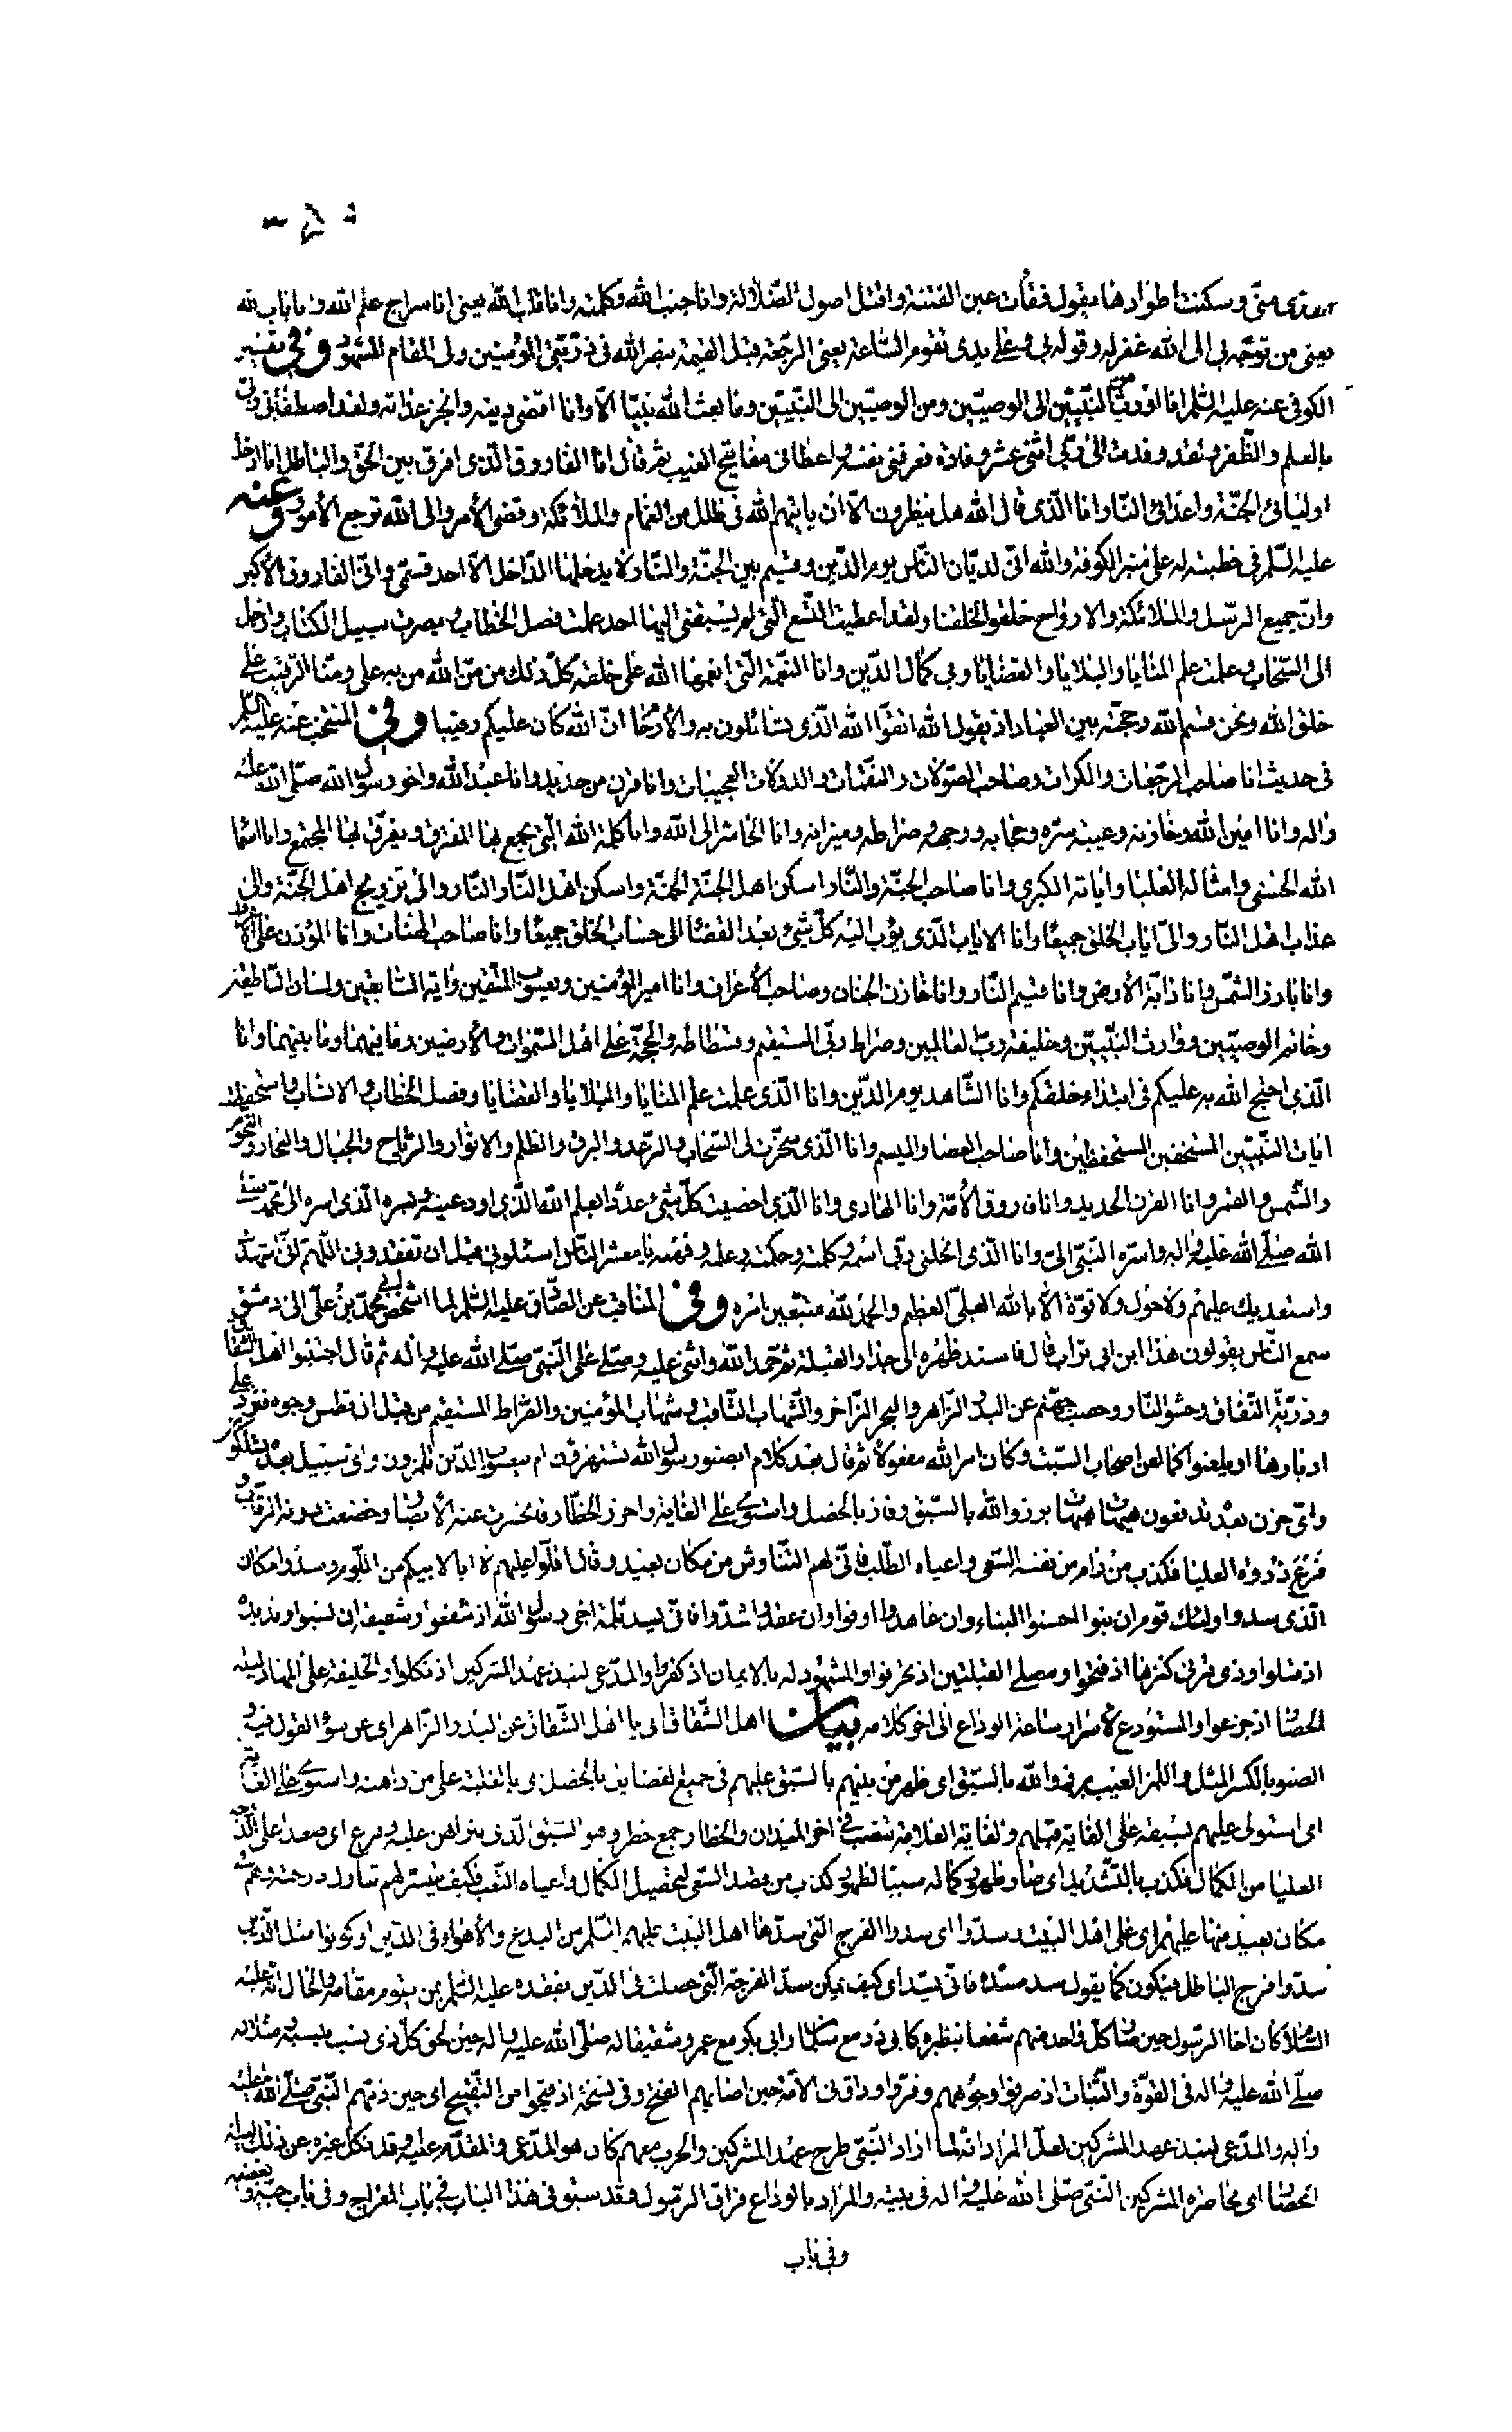 منّى وسكنت اطوادها مقول فقأت عين الفتنة واقتل اصول الضّلالة وانا جنب الله وكلمته وانا قلب الله يعنى انا سراج علم الله وانا باب الله
يعنى من توجّه بى الى الله غفر له وقوله بى وعلى يدى تقوم السّاعة يعنى الرّجعة قبل القيمة ينصر الله فى ذرّيّتى المؤمنين ولى المقام المشهود وفى تفسير
الكوفى عنه عليه السّلم انا اورث من النّبيّين الى الوصيّين ومن الوصيّين الى النّبيّين وما بعث الله نبيّا الّا وانا اقضى دينه وانجز عداته ولقد اصطفانى ربّى
بالعلم والظّفر ولقد وفدت الى ربّى اثنى عشر وفادة فعرفنى نفسه واعطانى مفاتيح الغيب ثم قال انا الفاروق الّذى افرق بين الحقّ والباطل انا ادخل
اوليائى الجنّة واعدائى النّار وانا الّذى قال الله هل ينظرون الّا ان ياتيهم الله فى ظلل من الغمام والملائكة وقضى الأمر والى الله ترجع الأمور وعنه
عليه السّلم فى خطبته له على منبر الكوفة والله انّى لديّان النّاس يوم الدّين وقسيم بين الجنّة والنّار لا يدخلها الدّاخل الّا احد قسمى وانّى الفاروق الأكبر
وانّ جميع الرّسل والملائكة والارواح خلقوا لخلقنا ولقد اعطيت التّسع الّتى لم يسبقنى اليها احد علمت فصل الخطاب وبصرت سبيل الكتاب وادخل
الى السّحاب وعلمت علم المنايا والبلايا والقضايا وبى كمال الدّين وانا النّعمة الّتى انعمها الله على خلقه كلّ ذلك من منّ الله من به علىّ ومنّا الرّقيب على
خلق الله ونحن قسم الله وحجّته بين العباد اذ يقول الله اتّقوا الله الّذى تسائلون به والأرحام انّ الله كان عليكم رقيبا وفى المنتخب عنه عليه السّلم
فى حديث انا صاحب الرّجعات والكرات وصاحب الصّولات والنّقمات والدولات العجيبات وانا قرن من حديد وانا عبد الله واخو رسول الله صلّى الله عليه
واله وانا امين الله وخازنه وعيبة سرّه وحجابه ووجهه وصراطه وميزانه وانا الحاشر الى الله وانا كلمة الله الّتى يجمع بها المفترق ويفرّق بها المجتمع وانا اسماء
الله الحسنى وامثاله العليا واياته الكبرى وانا صاحب الجنّة والنّار اسكن اهل الجنّة الجنّة واسكن اهل النّار النّار والىّ تزويج اهل الجنّة والىّ
عذاب اهل النّار والىّ اياب الخلق جميعًا وانا الاياب الّذى يؤب اليه كلّ شئ بعد القضاء الى حساب الخلق جميعًا وانا صاحب الهنات وانا المؤذن على الأعراف
وانا بارز الشّمس وانا دابّة الأرض وانا قسيم النّار وانا خازن الجنان وصاحب الأعراف وانا امير المؤمنين ويعسوب المتّقين واية السّابقين ولسان النّاطقين
وخاتم الوصيّين ووارث النّبيّين وخليفة ربّ العالمين وصراط ربّى المستقيم وفسطاطه والحجّة على اهل السّموات والأرضين وما فيهما وما بينهما وانا
الّذى احتج الله به عليكم فى ابتداء خلقكم وانا الشّاهد يوم الدّين وانا الّذى علمت علم المنايا والبلايا والقضايا وفصل الخطاب والانساب واستحفظت
ايات النّبيّين المستخفين المستحفظين وانا صاحب العصا والميسم وانا الّذى سخّرت لى السّحاب والرّعد والبرق والظلم والانوار والرّياح والجبال والبحار والنّجوم
والشّمس والقمر وانا القرن الحديد وانا فاروق الأمّة وانا الهادى وانا الّذى احصيت كلّ شئ عددًا بعلم الله الّذى اودعنيه وبسرّه الّذى اسره الى محمّد
الله صلّى الله عليه واله واسرّه النّبىّ الىّ وانا الّذى انحلنى ربّى اسمه وكلمته وحكمته وعلمه وفهمه يا معشر النّاس اسئلونى قبل ان تفقدونى اللّهمّ انّى اشهدك
واستعديك عليهم ولا حول ولا قوّة الّا بالله العلىّ العظيم والحمد لله متّبعين امره وفى المناقب عن الصّادق عليه السّلم لما اشخص ابى محمّد بن علىّ الى دمشق
سمع النّاس يقولون هذا ابن ابى تراب قال فاسند ظهره الى جدار القبلة ثم حمد الله واثنى عليه وصلّى على النّبى صلّى الله عليه واله ثم قال اجتنبوا اهل الشّقاق
وذرّيّة النّفاق وحشو النّار وحصب جهنّم عن البدر الزّاهر والبحر الزّاخر والشّهاب الثّاقب وشهاب المؤمنين والصّراط المستقيم من قبل ان نطمس وجوه فنردّها على
ادبارها او يلعنوا كما لعن اصحاب السّبت وكان امر الله مفعولا ثم قال بعد كلام ابصنو رسول الله تستهزؤن ام بيعسوب الدّين تلمزون واىّ سبيل بعده تسلكون
واىّ حزن بعده تدفعون هيهات هيهات برز والله بالسّبق وفاز بالخصل واستوى على الغاية واحرز الخطار فانحسرت عنه الأبصار وخضعت دونه الرّقاب
وفرع ذروة العليا فكذب من رام من نفسه السّعى واعياه الطّلب فانّى لهم التّناوش من مكان بعيد وقال اقلّوا عليهم لا ابا لابيكم من اللّوم وسدّوا مكان
الّذى سدوا اولئك قوم ان بنوا احسنوا البناء وان عاهدوا اوفوا وان عقدوا شدّوا فانّى يسد ثلمة اخى رسول الله اذ شفعوا وشقيقه اذ نسبوا ونديده
اذ فشلوا وذى قرنى كنزها اذ فتحوا ومصلى القبلتين اذ تحرفوا والمشهود له بالايمان اذ كفروا والمدّعى لنبذ عهد المشركين اذ نكلوا والخليفة على المهاد ليلة
الحصار اذ جزعوا والمستودع لأسرار ساعة الوداع الى اخر كلامه بيان اهل الشّقاق اى يا اهل الشّقاق عن البدر الزّاهر اى عن سوء القول فيه و
الصنو بالكسر المثل واللمز العيب برز والله بالسّبق اى ظهر من بينهم بالسّبق عليهم فى جميع الفضايل بالخصل اى بالغلبة على من راهنه واستوى على الغاية
اى استولى عليهم بسبقه على الغاية قبلهم والغاية العلامة تنصب فى اخر الميدان والخطار جمع خطر وهو السّبق الّذى يتراهن عليه وفرع اى صعد على الدّرجة
العليا من الكمال فكذب بالتّشديد اى صار ظهور كماله سببا لظهور كذب من قصد السّعى لتحصيل الكمال واعياه التّعب فكيف يتيسّر لهم تناول درجته وهم فى
مكان بعيد منها عليهم اى على اهل البيت وسدّوا اى سدوا الفرج الّتى سدّها اهل البيت عليهم السّلم من البدع والأهواء فى الدّين او كونوا مثل الّذين
سدّوا فرج الباطل فيكون كما يقول سد مسدّه فانّى يسّد اى كيف يمكن سدّ الفرجة الّتى حصلت فى الدّين بفقده عليه السّلم بمن يقوم مقامه والحال انّه عليه
السّلم كان اخا الرّسول حين صار كلّ واحد منهم شفعا بنظيره كابى ذر مع سلمان وابى بكر مع عمر وشقيقا له صلّى الله عليه واله حين لحق كلّ ذى نسب بنسبه ومثلا له
صلّى الله عليه واله فى القوّة والثّبات اذ صرفوا وجوههم وفرّوا وذى قرنى الأمّة حين اصابهم الفتح وفى نسخة اذ قبحوا من التّقبيح اى حين ذمّهم النّبىّ صلّى الله عليه
واله والمدّعى لنبذ عهد المشركين لعلّ المراد انّه لما اراد النّبىّ طرح عهد المشركين والحرب معهم كان هو المدّعى والمقدّم عليه وقد نكل غيره عن ذلك ليلة
الحصار اى محاصرة المشركين النّبى صلّى الله عليه واله فى بيته والمراد بالوداع فراق الرّسول وقد سبق فى هذا الباب فى باب المعراج وفى باب حبّه وبغضه
وفى باب